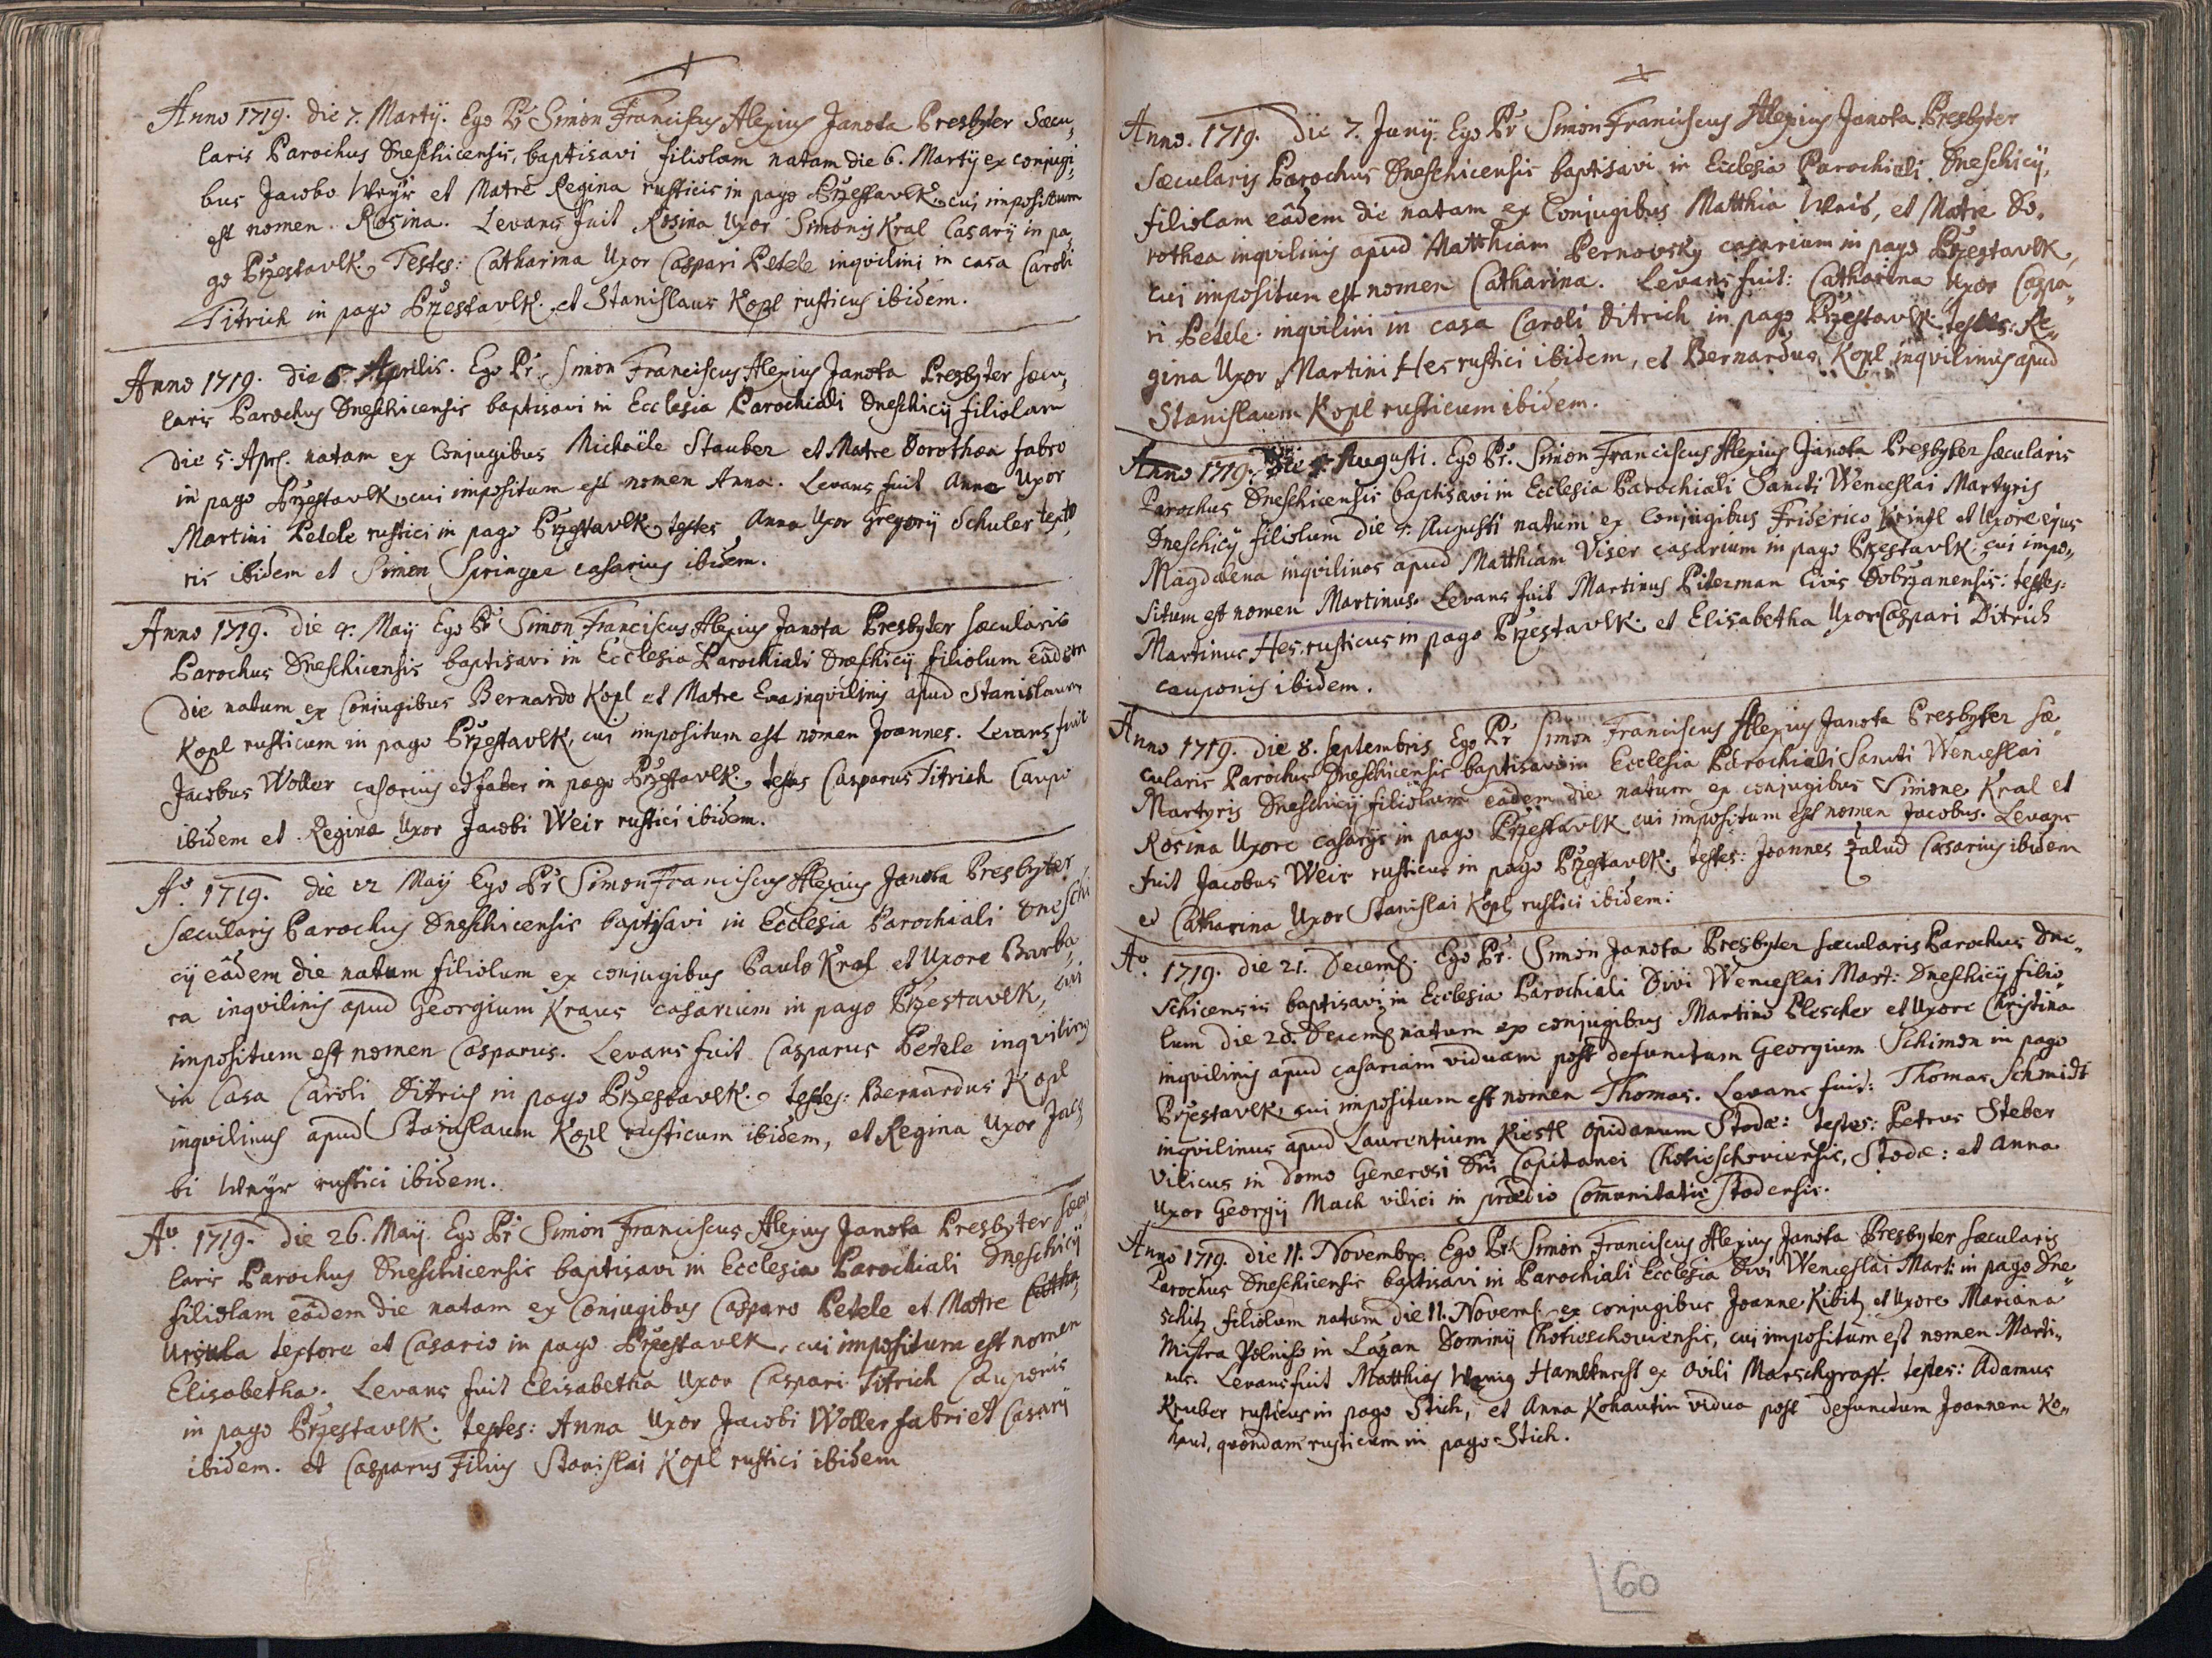 Anno 1719. die 7. Martij. Ego Pr Simon Franciscus Alexius Janota Presbyter Sæcu„
laris Parochus Dneschicensis, baptisavi filiolam natam die 6. Martij ex conjugi„
bus Jacobo Weyr et Matre Regina rusticis in pago Przestavlk. cui impositum
est nomen Rosina. Levans fuit Rosina Uxor Simonis Kral Casarij in pa„
go Przestavlk. Testes: Catharina Uxor Caspari Petele inqvilini in casa Caroli
Titrich in pago Przestavlk. et Stanislaus Kopl rusticus ibidem.
Anno 1719. die 6. Aprilis. Ego Pr. Simon Franciscus Alexius Janota Presbyter sæcu„
laris Parochus Dneschicensis baptisavi in Ecclesia Parochiali Dneschicij filiolam
die 5. Apr. natam ex Conjugibus Michaële Stauber et Matre Dorothæa fabro
in pago Przestavlk, cui impositum est nomen Anna. Levans fuit Anna Uxor
Martini Petele rustici in pago Przestavlk, testes Anna Uxor Gregorij Schuler texto„
ris ibidem et Simon Springer casarius ibidem.
Anno 1719. die 4. Maij Ego Pr Simon Franciscus Alexius Janota Presbyter sæcularis
Parochus Dneschicensis baptisavi in Ecclesia Parochiali Dneschicij filiolum eâdem
die natum ex Conjugibus Bernardo Kopl et Matre Eva inqvilinis apud Stanislaum
Kopl rusticum in pago Przestavlk, cui impositum est nomen Joannes. Levans fuit
Jacobus Woller casarius et faber in pago Przestavlk. testes Casparus Titrich Caupo
ibidem et Regina Uxor Jacobi Weir rustici ibidem.
Ao. 1719. die 12 Maij Ego Pr Simon Franciscus Alexius Janota Presbyter
Sæcularis Parochus Dneschicensis baptisavi in Ecclesia Parochiali Dneschi
cij eâdem die natum filiolum ex conjugibus Paulo Kral et Uxore Barba„
ra inqvilinis apud Georgium Kraus casarium in pago Przestavlk, cui
impositum est nomen Casparus. Levans fuit Casparus Petele inqvilinus
in Casa Caroli Ditrich in pago Przestavlk. testes: Bernardus Kopl
inqvilinus apud Stanislaum Kopl rusticum ibidem, et Regina Uxor Jaco„
bi Weyr rustici ibidem.
Ao. 1719. die 26. Maij. Ego Pr Simon Franciscus Alexius Janota Presbyter sæcu
laris Parochus Dneschicensis baptisavi in Ecclesia Parochiali Dneschicij
filiolam eâdem die natam ex Conjugibus Casparo Petele et Matre
Ursula textore et Casario in pago Przestavlk, cui impositum est nomen
Elisabetha. Levans fuit Elisabetha Uxor Caspari Titrich Cauponis
in pago Przestavlk. testes: Anna Uxor Jacobi Woller fabri et Casarij
ibidem. et Casparus Filius Stanislai Kopl rustici ibidem
Anno. 1719. Die 7. Junij. Ego Pr Simon Franciscus Alexius Janota Presbyter
Sæcularis Parochus Dneschicensis baptisavi in Ecclesia Parochiali Dneschicij,
filiolam eâdem die natam ex Conjugibus Matthia Weis, et Matre Do„
rothea inqvilinis apud Matthiam Pernovsky casarium in pago Przestavlk,
cui impositum est nomen Catharina. Levans fuit: Catharina Uxor Caspa„
ri Petele inqvilini in casa Caroli Ditrich in pago Przestavlk. testes: Re„
gina Uxor Martini Hes rustici ibidem, et Bernardus Kopl inqvilinus apud
Stanislaum Kopl rusticum ibidem.
Anno 1719. Die 4. Augusti. Ego Pr. Simon Franciscus Alexius Janota Presbyter sæcularis
Parochus Dneschicensis baptisavi in Ecclesia Parochiali Sancti Wenceslai Martyris
Dneschicij filiolum die 4. Augusti natum ex Conjugibus Friderico Kringl et Uxore ejus
Magdalena inqvilinos apud Matthiam Viser casarium in pago Przestavlk. cui impo„
situm est nomen Martinus. Levans fuit Martinus Piterman Civis Dobrzanensis: testes:
Martinus Hes rusticus in pago Przestavlk. et Elisabetha Uxor Caspari Ditrich
cauponis ibidem.
Anno 1719. die 8. Septembris Ego Pr Simon Franciscus Alexius Janota Presbyter Sæ„
cularis Parochus Dneschicensis baptisavi in Ecclesia Parochiali Sancti Wenceslai
Martyris Dneschicij filiolum eâdem die natum ex conjugibus Simone Kral et
Rosina Uxore casarijs in pago Przestavlk cui impositum est nomen Jacobus. Levans
fuit Jacobus Weir rusticus in pago Przestavlk. testes: Joannes Zalud Casarius ibidem
et Catharina Uxor Stanislai Kopl rustici ibidem.
Ao. 1719. die 21. Decemb. Ego Pr. Simon Janota Presbyter sæcularis Parochus Dne„
schicensis baptisavi in Ecclesia Parochiali Divi Wenceslai Mart: Dneschicij filio„
lum die 20. Decemb natum ex conjugibus Martino Plescher et Uxore Christina
inqvilinis apud casariam viduam post defunctum Georgium Schimon in pago
Przestavlk, cui impositum est nomen Thomas. Levans fuit: Thomas Schmidt
inqvilinus apud Laurentium Kiestl opidanum Stodæ: testes: Petrus Steber
Vilicus in domo Generosi Dni Capitanei Chotieschoviensis, Stodæ: et Anna
Uxor Georgij Mach vilici in prædio Comunitatis Stodensis.
Anno 1719. die 11. Novembr. Ego Pr. Simon Franciscus Alexius Janota Presbyter sæcularis
Parochus Dneschicensis baptisavi in Parochiali Ecclesia Divi Wenceslai Mart: in pago Dne„
schitz filiolum natum die 11. Novemb. ex conjugibus Joanne Kibitz et Uxore Mariana
Mistra Polniso in Lazan Dominij Chotieschoviensis, cui impositum est nomen Marti„
nus. Levans fuit Matthias Wenig Hamlknecht ex Ovili Marschgraff. testes: Adamus
Kruber rusticus in pago Stich, et Anna Kohautin vidua post defunctum Joannem Ko„
haut, qvondam rusticum in pago Stich.
60